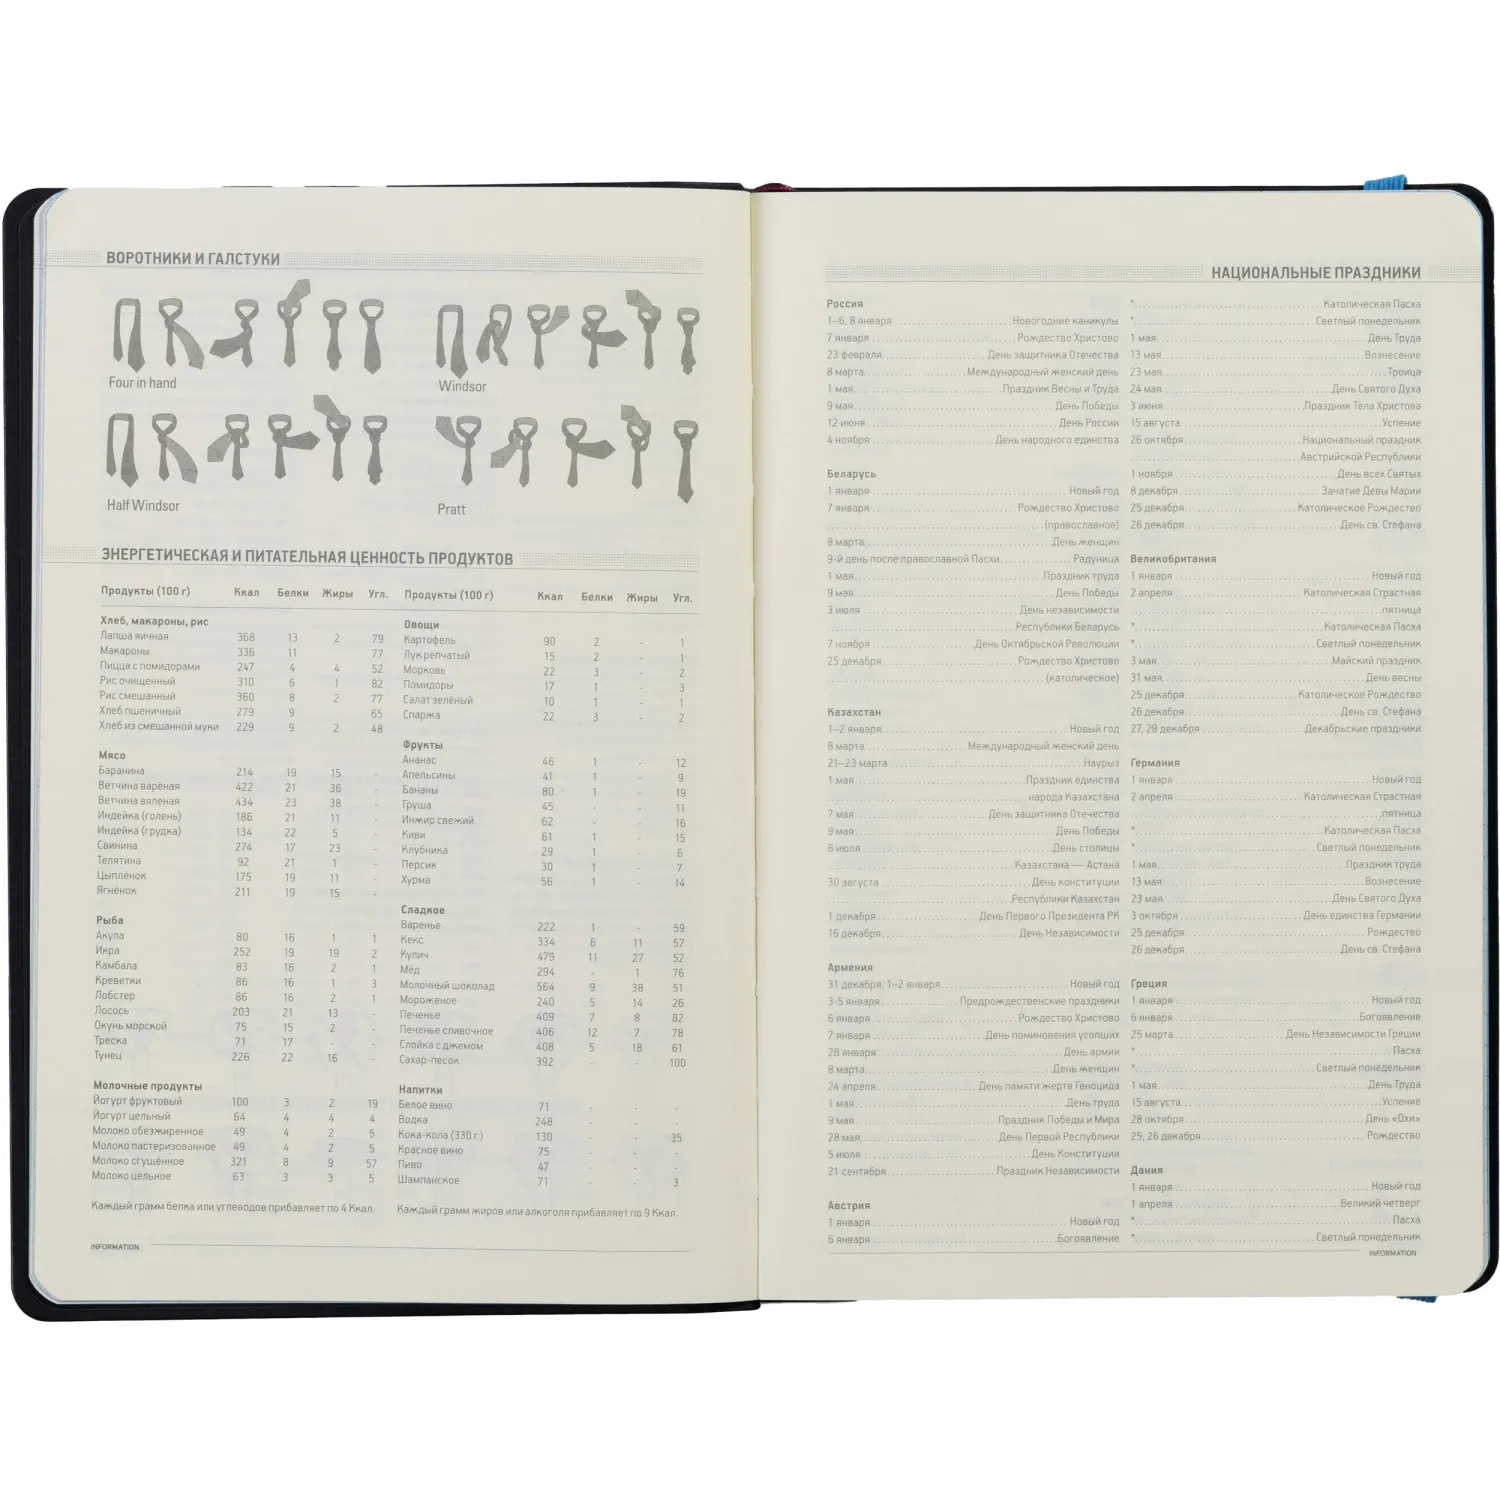 ВОРОТНИКИ И ГАЛСТУКИ
Four in hand
Windsor
Half Windsor
Pratt
ЭНЕРГЕТИЧЕСКАЯ И ПИТАТЕЛЬНАЯ ЦЕННОСТЬ ПРОДУКТОВ
Продукты (100 г) Ккал Белки Жиры Угл.
Хлеб, макароны, рис
Лапша яичная 368 13 2 79
Макароны 336 11 77
Пицца с помидорами 247 4 4 52
Рис очищенный 310 6 1 82
Рис смешанный 360 8 2 77
Хлеб пшеничный 279 9 65
Хлеб из смешанной муки 229 9 2 48
Мясо
Баранина 214 19 15 -
Ветчина варёная 422 21 36 -
Ветчина вяленая 434 23 38 -
Индейка (голень) 186 21 11 -
Индейка (грудка) 134 22 5 -
Свинина 274 17 23 -
Телятина 92 21 1 -
Цыплёнок 175 19 11 -
Ягнёнок 211 19 15 -
Рыба
Акула 80 16 1 1
Икра 252 19 19 2
Камбала 83 16 2 1
Креветки 86 16 1 3
Лобстер 86 16 2 1
Лосось 203 21 13 -
Окунь морской 75 15 2 -
Треска 71 17 - -
Тунец 226 22 16 -
Молочные продукты
Йогурт фруктовый 100 3 2 19
Йогурт цельный 64 4 4 4
Молоко обезжиренное 49 4 2 5
Молоко пастеризованное 49 4 2 5
Молоко сгущённое 321 8 9 57
Молоко цельное 63 3 3 5
Каждый грамм белка или углеводов прибавляет по 4 Ккал.
Продукты (100 г) Ккал Белки Жиры Угл.
Овощи
Картофель 90 2 - 1
Лук репчатый 15 2 - 1
Морковь 22 3 - 2
Помидоры 17 1 - 3
Салат зелёный 10 1 - 1
Спаржа 22 3 - 2
Фрукты
Ананас 46 1 - 12
Апельсины 41 1 - 9
Бананы 80 1 - 19
Груша 45 - - 11
Инжир свежий 62 - - 16
Киви 61 1 - 15
Клубника 29 1 - 6
Персик 30 1 - 7
Хурма 56 1 - 14
Сладкое
Варенье 222 1 - 59
Кекс 334 6 11 57
Кулич 479 11 27 52
Мёд 294 - 1 76
Молочный шоколад 564 9 38 51
Мороженое 240 5 14 26
Печенье 409 7 8 82
Печенье сливочное 406 12 7 78
Слойка с джемом 408 5 18 61
Сахар-песок 392 - - 100
Напитки
Белое вино 71 - - -
Водка 248 - - -
Кока-кола (330 г.) 130 - - 35
Красное вино 75 - - -
Пиво 47 - - -
Шампанское 71 - - 3
Каждый грамм жиров или алкоголя прибавляет по 9 Ккал.
INFORMATION
НАЦИОНАЛЬНЫЕ ПРАЗДНИКИ
Россия
1–6, 8 января Новогодние каникулы
7 января Рождество Христово
23 февраля День защитника Отечества
8 марта Международный женский день
1 мая Праздник Весны и Труда
9 мая День Победы
12 июня День России
4 ноября День народного единства
Беларусь
1 января Новый год
7 января Рождество Христово
(православное)
8 марта День женщин
9-й день после православной Пасхи Радуница
1 мая Праздник труда
9 мая День Победы
3 июля День независимости
Республики Беларусь
7 ноября День Октябрьской Революции
25 декабря Рождество Христово
(католическое)
Казахстан
1–2 января Новый год
8 марта Международный женский день
21–23 марта Наурыз
1 мая Праздник единства
народа Казахстана
7 мая День защитника Отечества
9 мая День Победы
6 июля День столицы
Казахстана — Астана
30 августа День конституции
Республики Казахстан
1 декабря День Первого Президента РК
16 декабря День Независимости
Армения
31 декабря, 1–2 января Новый год
3-5 января Предрождественские праздники
6 января Рождество Христово
7 января День поминовения усопших
28 января День армии
8 марта День женщин
24 апреля День памяти жертв Геноцида
1 мая День труда
9 мая Праздник Победы и Мира
28 мая День Первой Республики
5 июля День Конституции
21 сентября Праздник Независимости
Австрия
1 января Новый год
6 января Богоявление
* Католическая Пасха
* Светлый понедельник
1 мая День Труда
13 мая Вознесение
23 мая Троица
24 мая День Святого Духа
3 июня Праздник Тела Христова
15 августа Успение
26 октября Национальный праздник
Австрийской Республики
1 ноября День всех Святых
8 декабря Зачатие Девы Марии
25 декабря Католическое Рождество
26 декабря День св. Стефана
Великобритания
1 января Новый год
2 апреля Католическая Страстная
пятница
* Католическая Пасха
* Светлый понедельник
3 мая Майский праздник
31 мая День весны
25 декабря Католическое Рождество
26 декабря День св. Стефана
27, 28 декабря Декабрьские праздники
Германия
1 января Новый год
2 апреля Католическая Страстная
пятница
* Католическая Пасха
* Светлый понедельник
1 мая Праздник труда
13 мая Вознесение
23 мая День Святого Духа
3 октября День единства Германии
25 декабря Рождество
26 декабря День св. Стефана
Греция
1 января Новый год
6 января Богоявление
25 марта День Независимости Греции
* Пасха
* Светлый понедельник
1 мая День Труда
15 августа Успение
28 октября День «Охи»
25, 26 декабря Рождество
Дания
1 января Новый год
1 апреля Великий четверг
* Пасха
* Светлый понедельник
INFORMATION